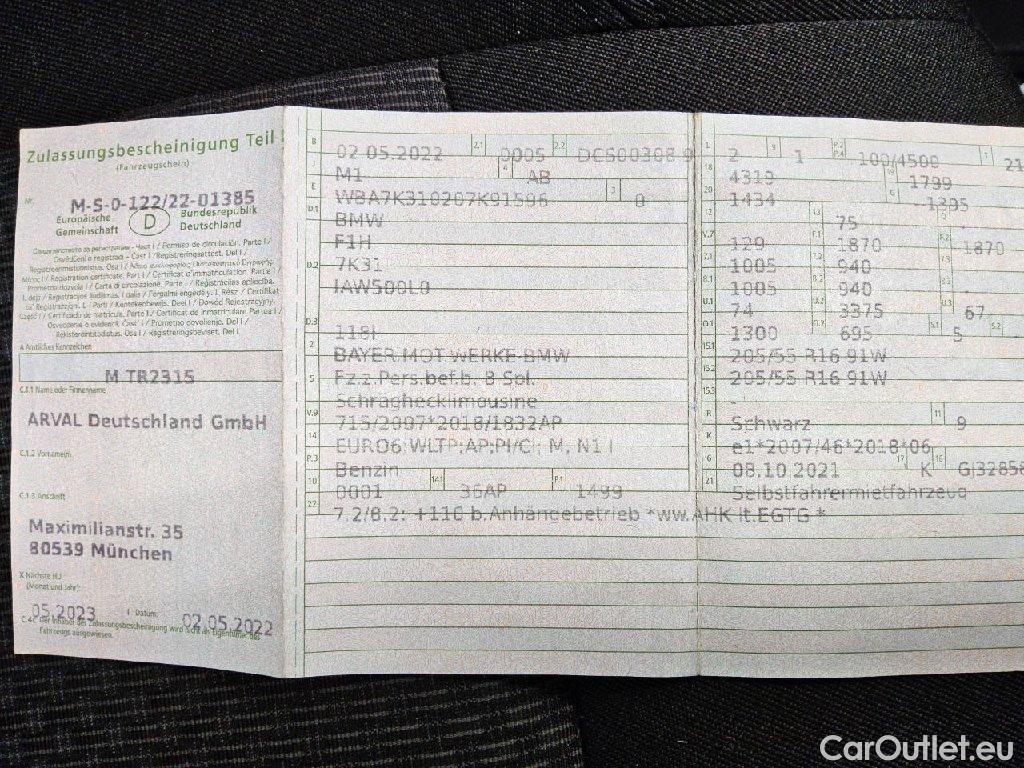 Zulassungsbescheinigung Teil
(Fahrzeugschein)
Nr.
M-S-0-122/22-01385
Europäische Gemeinschaft
D
Bundesrepublik Deutschland
A Amtliches Kennzeichen
M TR2315
C.1.1 Name oder Firmenname
ARVAL Deutschland GmbH
C.1.2 Vorname(n)
C.1.3 Anschrift
Maximilianstr. 35
80539 München
X Nächste HU
(Monat und Jahr)
05.2023
I Datum:
02.05.2022
C.4c Der Inhaber der Zulassungsbescheinigung wird nicht als Eigentümer des
Fahrzeugs ausgewiesen.
B 02.05.2022 2.1 0005 2.2 DCS00308 9
J M1 4 AB
E WBA7K310207K91596 3 0
D.1 BMW
F1H
D.2 7K31
IAW500L0
D.3 118I
2 BAYER.MOT.WERKE-BMW
5 Fz.z.Pers.bef.b. 8 Spl.
Schräghecklimousine
V.9 715/2007*2018/1832AP
14 EURO6;WLTP;AP;PI/CI; M, N1 I
P.3 Benzin
10 0001 14.1 36AP P.1 1499
22 7.2/8.2: +110 b.Anhängebetrieb *ww.AHK lt.EGTG *
L 2 9 1 P.2 P.4 100/4500 T 21
18 4319 19 1799
20 1434 1395
12 13 75
V.7 129 1870 1870
7.1 1005 940
8.1 1005 940
U.1 74 3375 67
O.1 1300 O.2 695 S.1 5 S.2
15.1 205/55 R16 91W
15.2 205/55 R16 91W
15.3 -
R Schwarz 11 9
K e1*2007/46*2018*06
6 08.10.2021 17 K 16 GJ32858
21 Selbstfahrermietfahrzeug
CarOutlet.eu